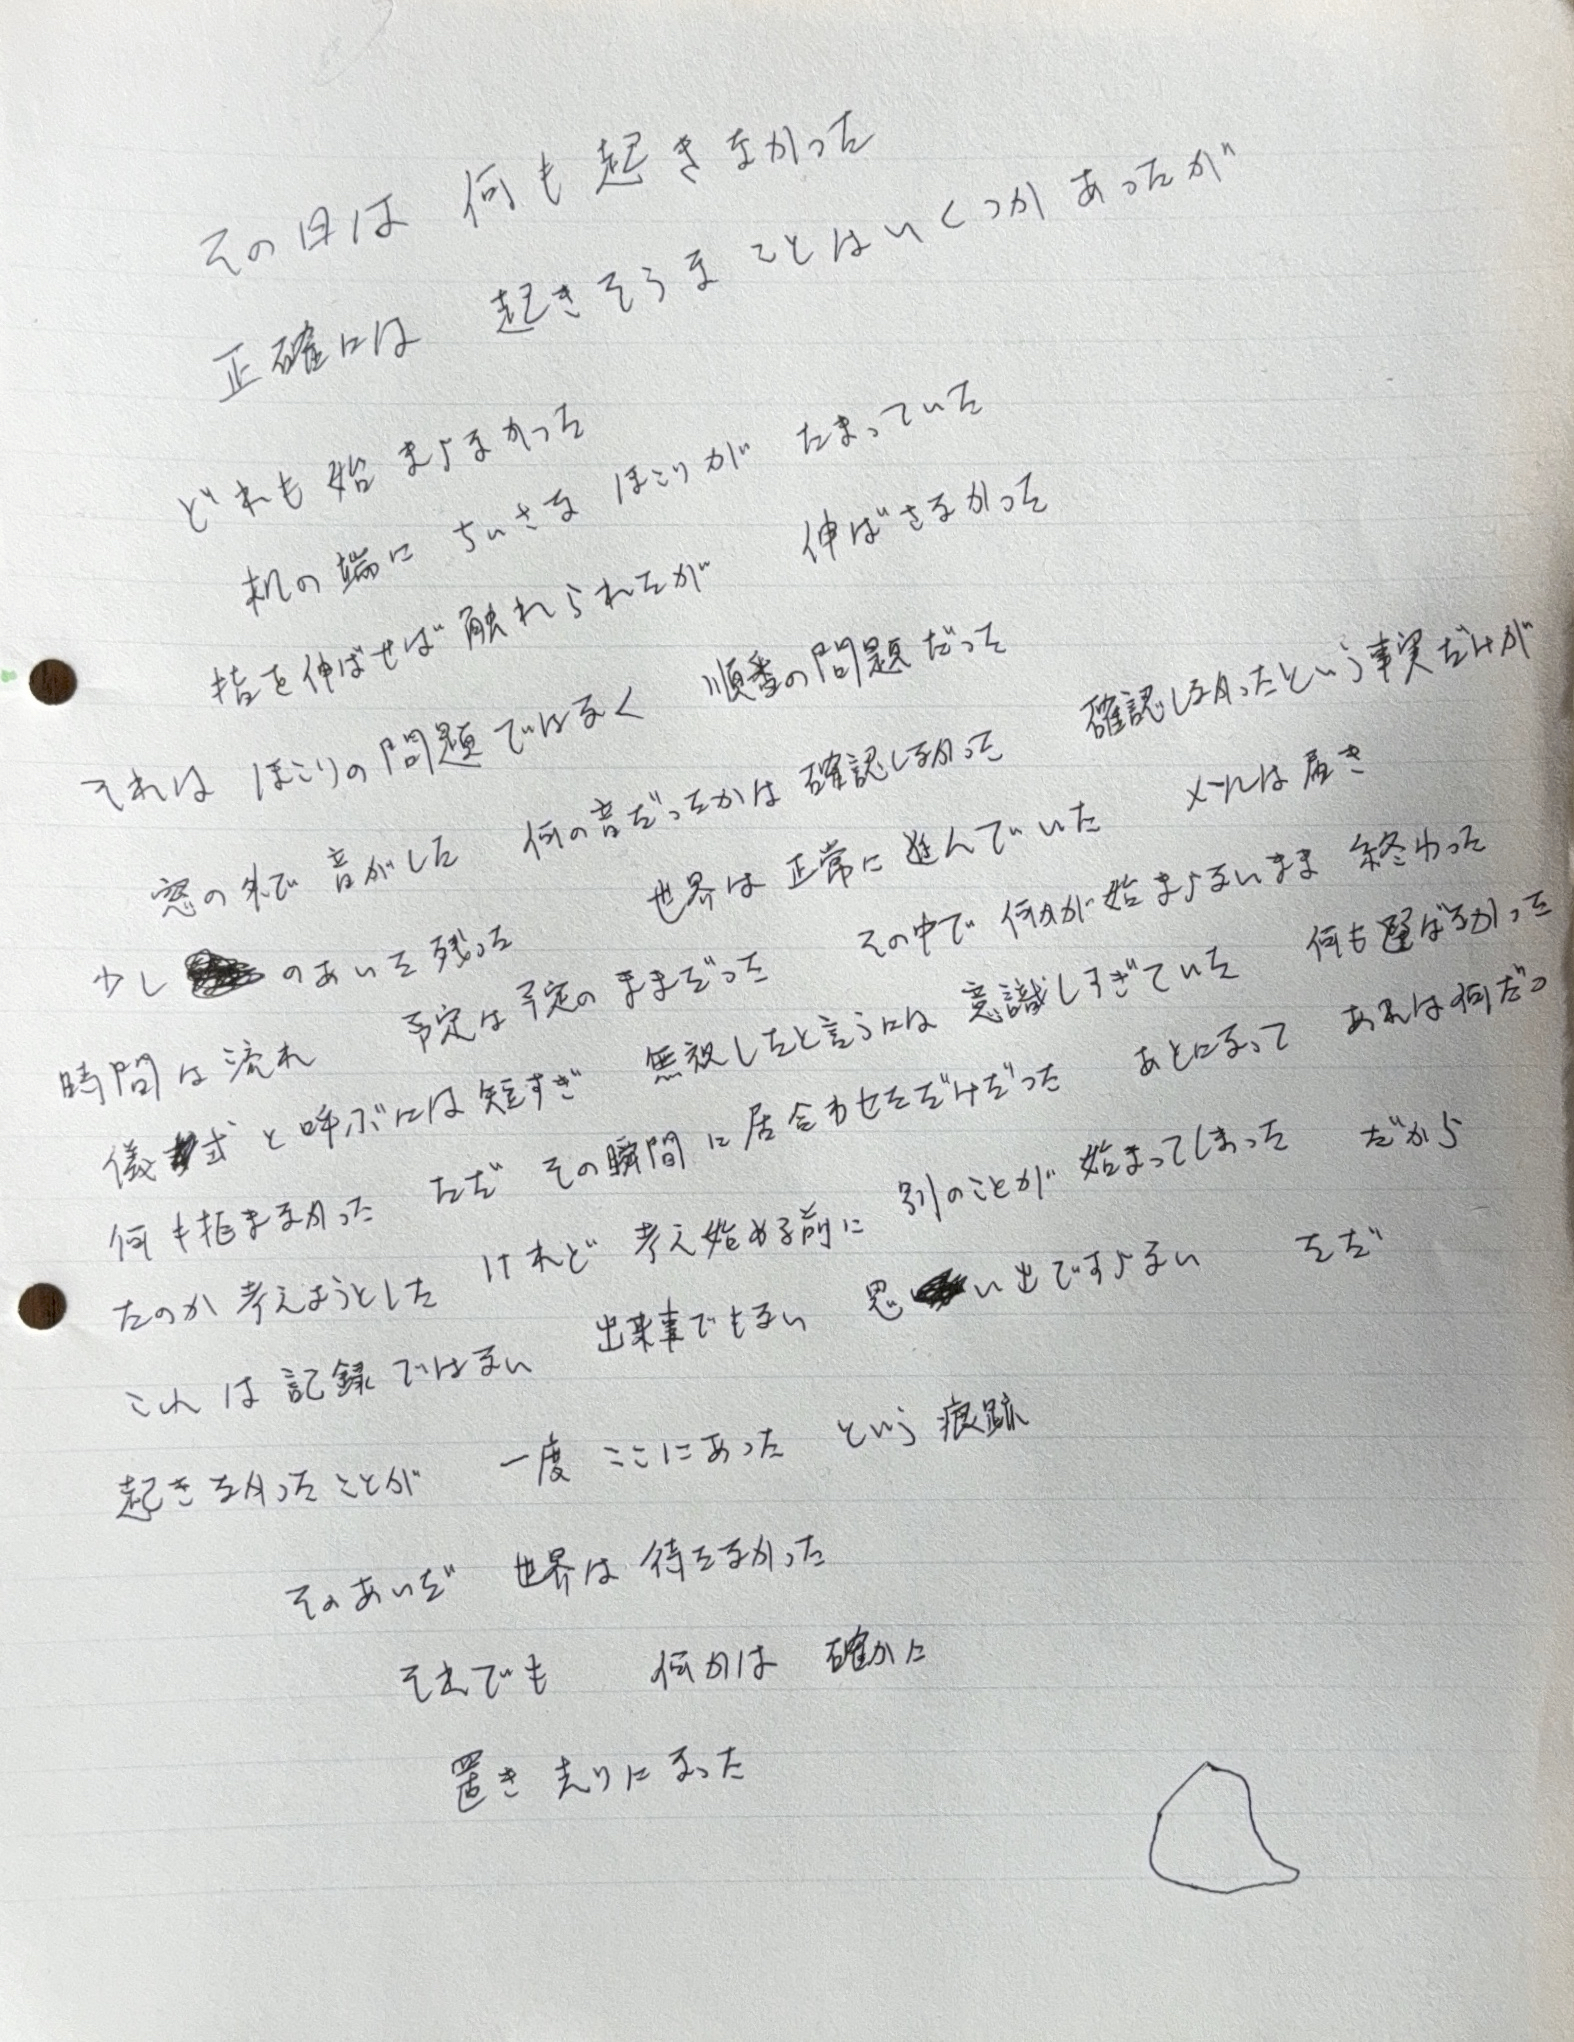 その日は 何も起きなかった
正確には 起きそうなことはいくつかあったが
どれも始まらなかった
机の端に ちいさな ほこりが たまっていた
指を伸ばせば触れられたが 伸ばさなかった
それは ほこりの問題ではなく 順番の問題だった
窓の外で音がした 何の音だったかは確認しなかった 確認しなかったという事実だけが
少し のあいだ残った 世界は正常に進んでいた メールは届き
時間は流れ 予定は予定のままだった その中で何かが始まらないまま 終わった
儀式と呼ぶには短すぎ 無視したと言うには意識しすぎていた 何も選ばなかった
何も拒まなかった ただ その瞬間に居合わせただけだった あとになって あれは何だっ
たのか考えようとした けれど 考え始める前に 別のことが始まってしまった だから
これは記録ではない 出来事でもない 思い出ですらない ただ
起きなかったことが 一度ここにあった という痕跡
そのあいだ 世界は待たなかった
それでも 何かは 確かに
置き去りになった